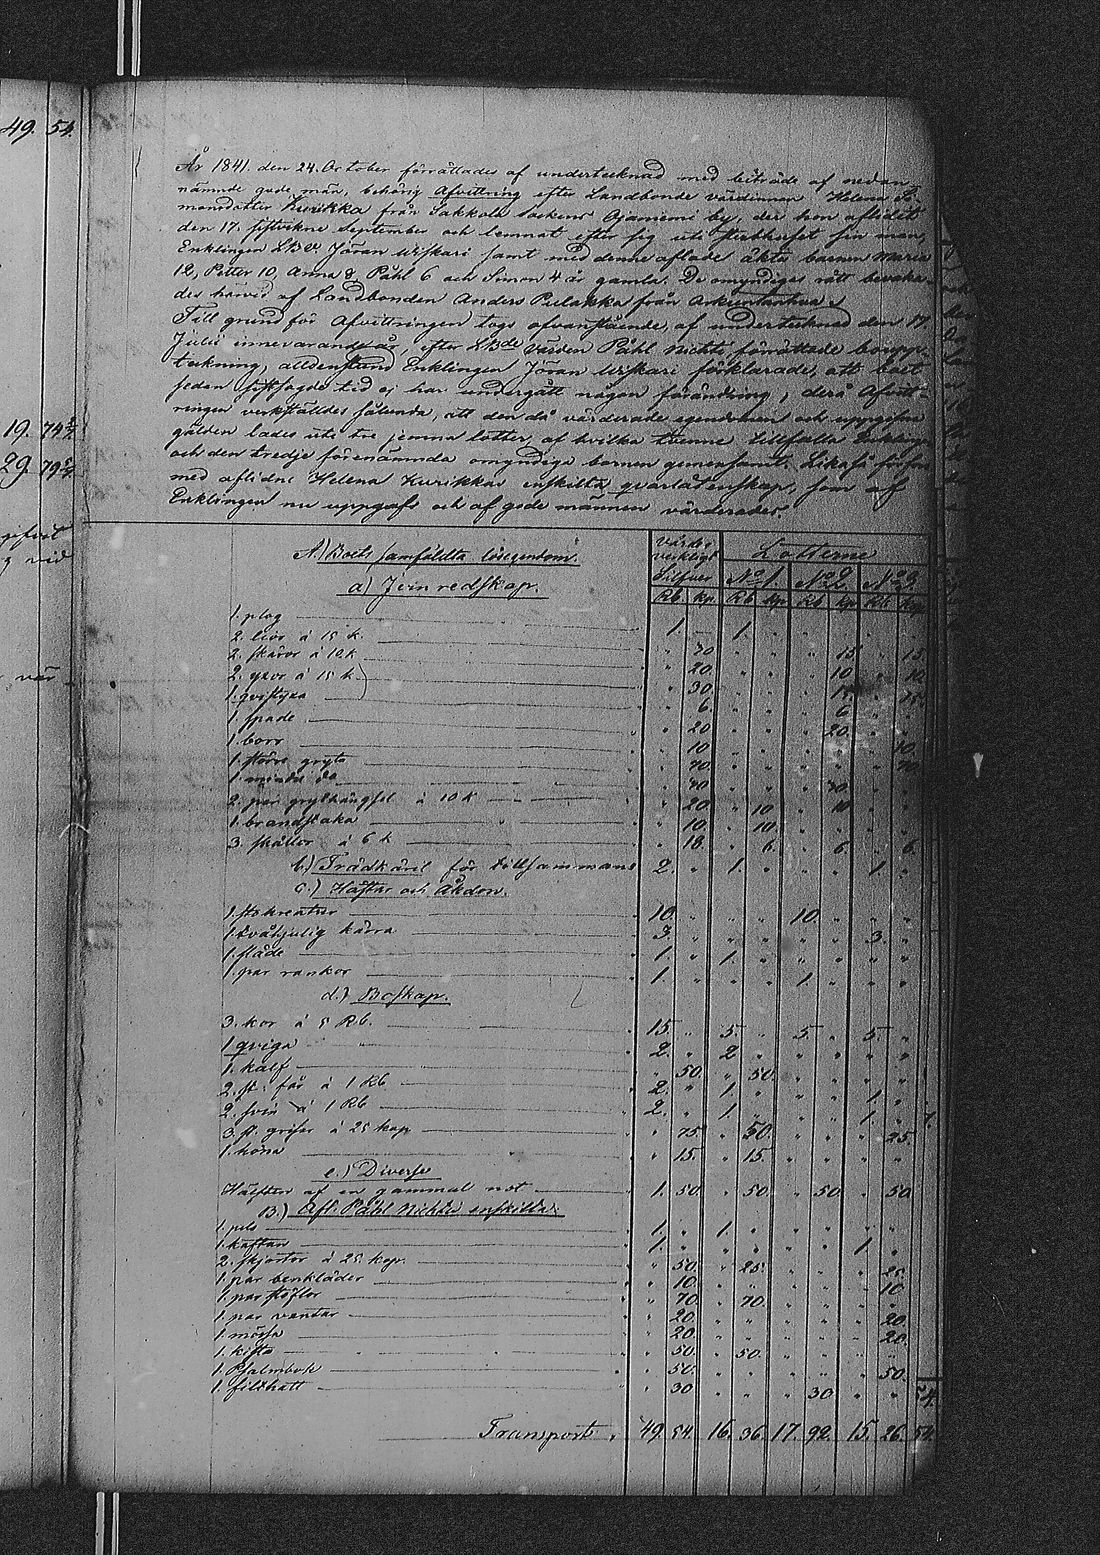 49. 54.
År 1841. den 24. October förrättades af undertecknad med biträde af nedan-
nämnde gode män, behörig Afvittring efter Landbonde värdinnan Helena Si-
monsdotter Kurikka från Sakkola Sockens Ojaniemi by, der hon aflidit
den 17. sistvikne September och lemnat efter sig uti sterbhuset sin man,
Enklingen LBdr Jöran Wiskari samt med denne aflade äkta barnen Maria
12, Petter 10, Anna 8, Påhl 6 och Simon 4 år gamla. De omyndiges rätt bevaka-
des härvid af Landbonden Anders Pulakka från
Till grund för Afvittringen togs ofvanstående, af undertecknad den 17.
Julii innevarande år, efter LBde Värden Påhl Nichti förrättade bouppt-
teckning, alldenstund Enklingen Jöran Wiskari förklarade, att boet
sedan sistsagde tid ej har undergått någon förändring; derå Afvitt-
ringen verkställdes sålunda, att den då värderade egendomen och uppgifna
gälden lades uti tre jemna lotter, af hvilka tvenne tillfalla Enklingen
och den tredje förenämnda omyndiga barnen gemensamt. Likaså förfors
med aflidne Helena Kurikkas enskilta qvarlåtenskap, som af
Enklingen nu uppgafs och af gode männen värderades.
19. 74
29. 79
A.) Boets samfäldta lösegendom.
a.) Jernredskap.
Silfver Lotterne
No 1. No 2 No 3
Rb. kp. Rb kp. Rb kp. Rb. kop.
1. plog 1. " 1. " " " " "
2. liar à 15 k. " 30 " " " 15 " 15.
2. skäror à 10 k " 20. " " " 10 " 10.
2. yxor à 15 k " 30. " " " 15 " 15.
1. " 6. " " " 6. " "
1. spade " 20 " " " 20. " "
1. borr " 10 " " " " " 10.
1. större gryta " 70. " " " " " 70.
1. mindre do " 40 " " " 40. " "
2. par grythängsel à 10 k " 20. " 10 " 10 " "
1. brandstaka " 10. " 10. " " " "
3. skällor à 6 k " 18. " 6. " 6 " 6.
b.) Trädkäril för tillsammans 2. " 1. " " " 1. "
c.) Hästar och Åkdon.
1. stokreatur 10. " " " 10. " " "
1. tvåhjulig kärra 3. " " " " " 3. "
1. släde 1. " 1. " " " " "
1. par rankor 1. " " " 1. " " "
d.) Boskap.
3. kor à 5 Rb. 15. " 5 " 5. " 5. "
1. qviga 2. " 2 " " " " "
1. kalf " 50. " 50. " " " "
2. st. får à 1 Rb 2. " 1. " " " 1. "
2. svin à 1 Rb 2. " 1. " " " 1. "
3. st. grisar à 25 kop " 75. " 50. " " " 25.
1. höna " 15. " 15. " " " "
e.) Diverse
Hälften af en gammal not 1. 50. " 50. " 50. " 50.
B.) Afl. Påhl Nichtis enskilta.
1. pels 1. " 1. " " " " "
1. kaftan 1. " " " " " 1. "
2. skjortor à 25. kop. " 50. " 25. " " " 25.
1. par benkläder " 10. " " " " " 10
1. par stöflor " 70. " 70. " " " "
1. par vantar " 20. " " " " " 20.
1. mössa " 20. " " " " " 20.
1. kista " 50. " 50. " " " "
1. Psalmbok " 50. " " " " " 50.
1. filthatt " 30 " " " 30. " "
Transport. 49. 54 16. 36. 17. 92. 15. 26.